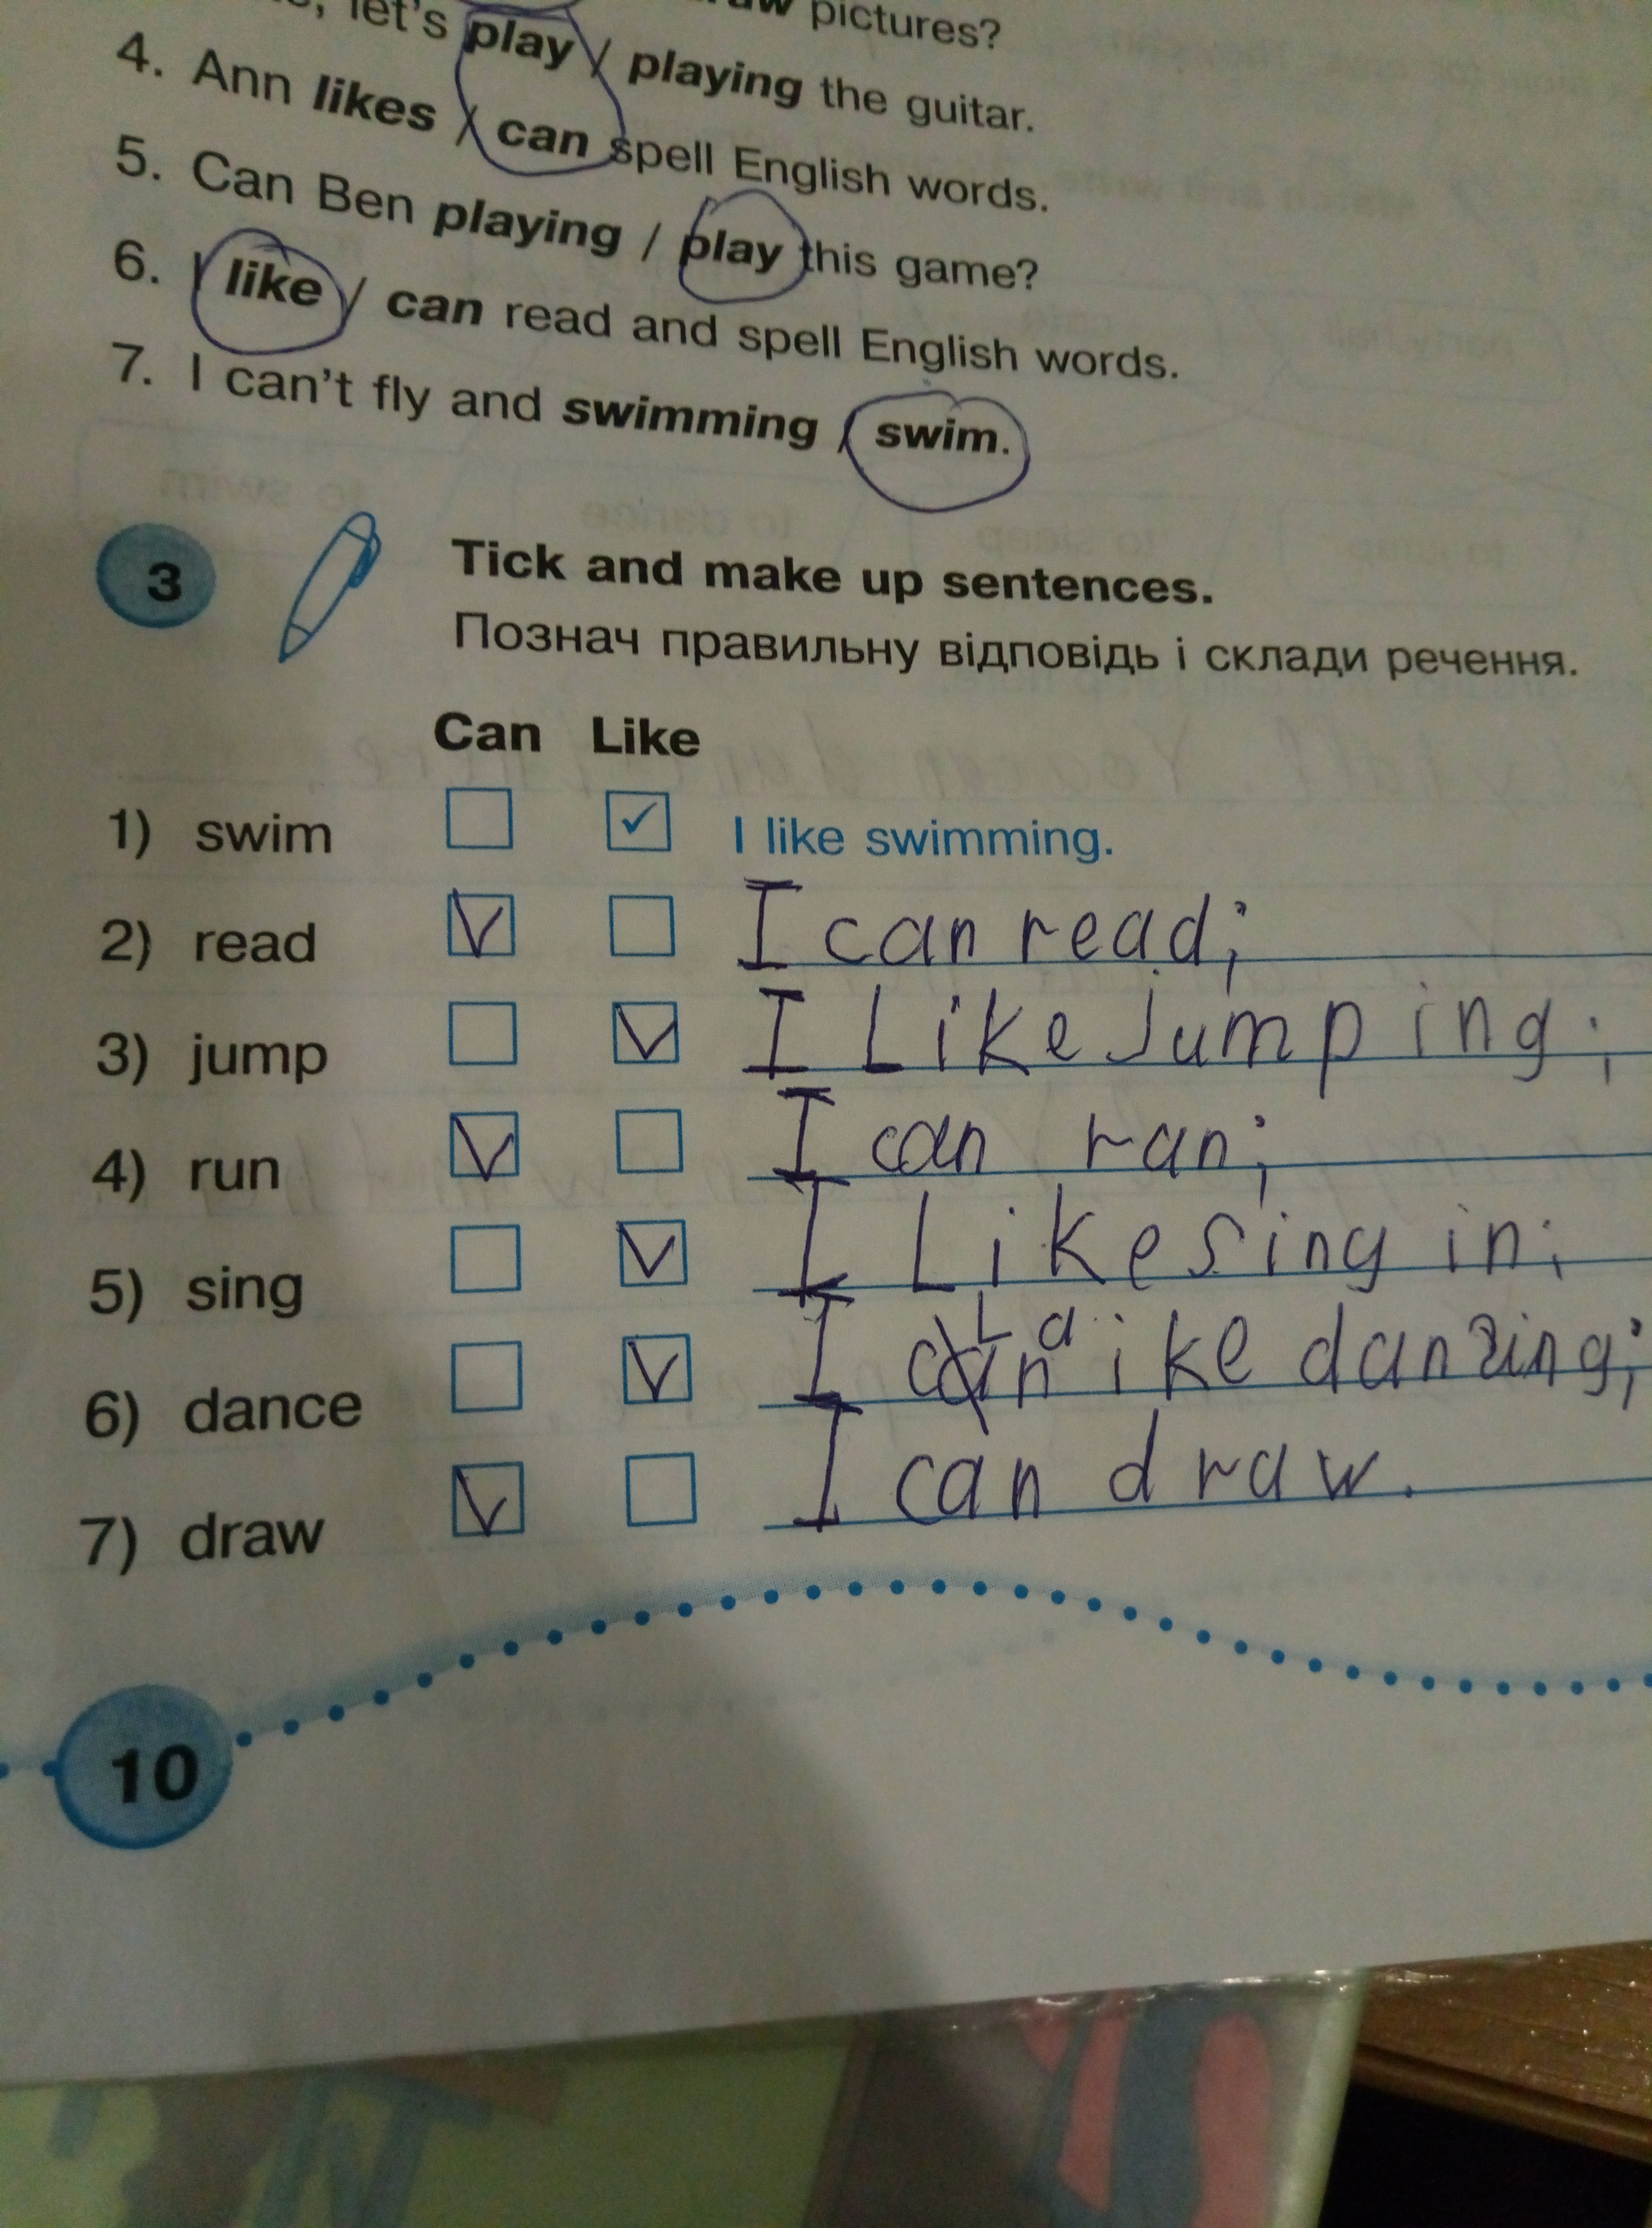 pictures?
let's play / playing the guitar.
4. Ann likes / can spell English words.
5. Can Ben playing / play this game?
6. I like / can read and spell English words.
7. I can't fly and swimming / swim.
3 Tick and make up sentences.
Познач правильну відповідь і склади речення.
Can Like
1) swim ✓ I like swimming.
2) read V I can read;
3) jump V I Like jumping;
4) run V I can ran;
5) sing V I Like singin;
6) dance V I ike danzing;
7) draw V I can draw.
10